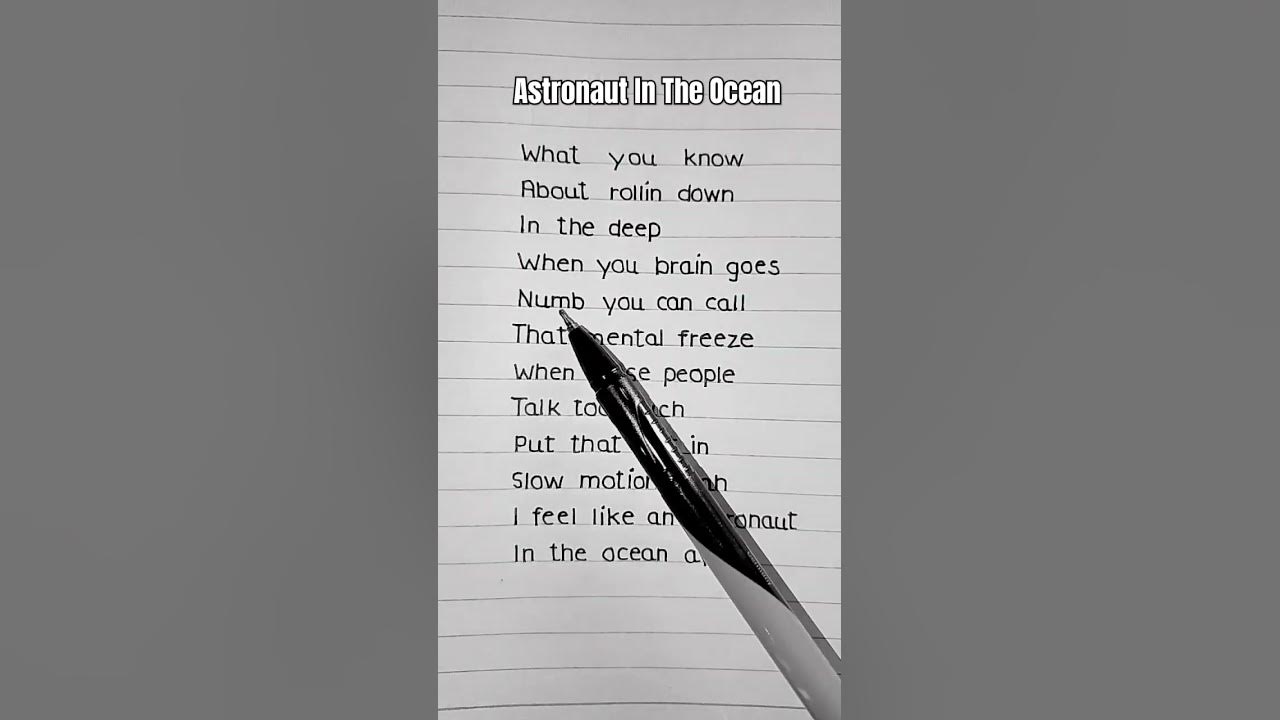 Astronaut In The Ocean
What you know
About rollin down
In the deep
When you brain goes
Numb you can call
That mental freeze
When people
Talk too
Put that in
Slow motion
I feel like an astronaut
In the ocean